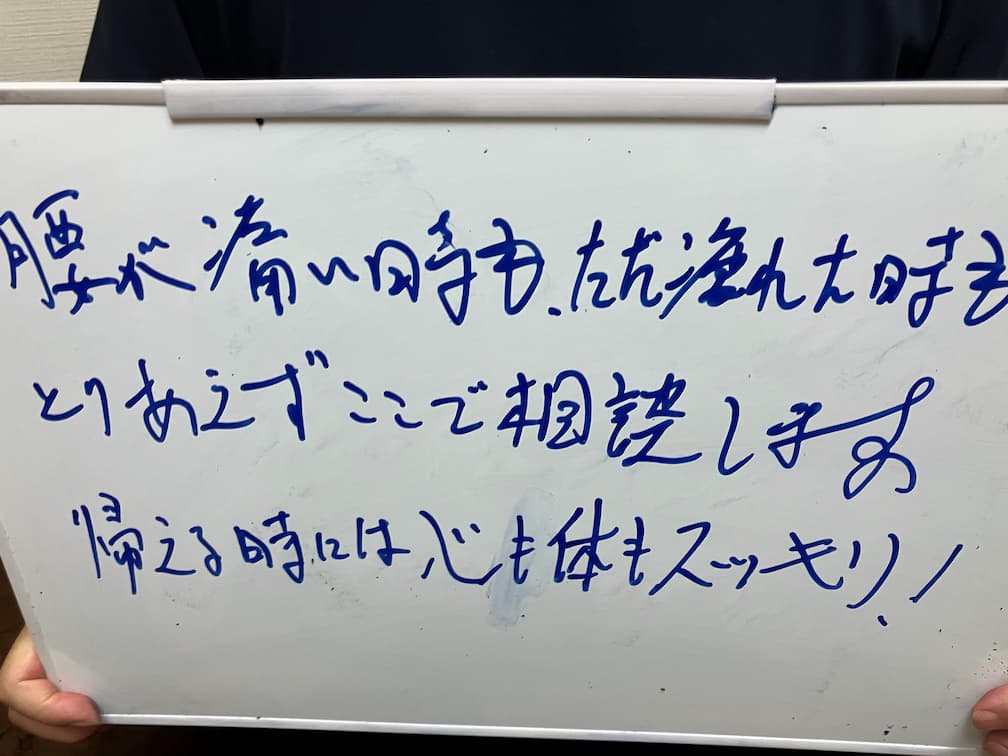 腰が痛い時も、ただ疲れた時も
とりあえずここで相談します
帰える時には心も体もスッキリ!